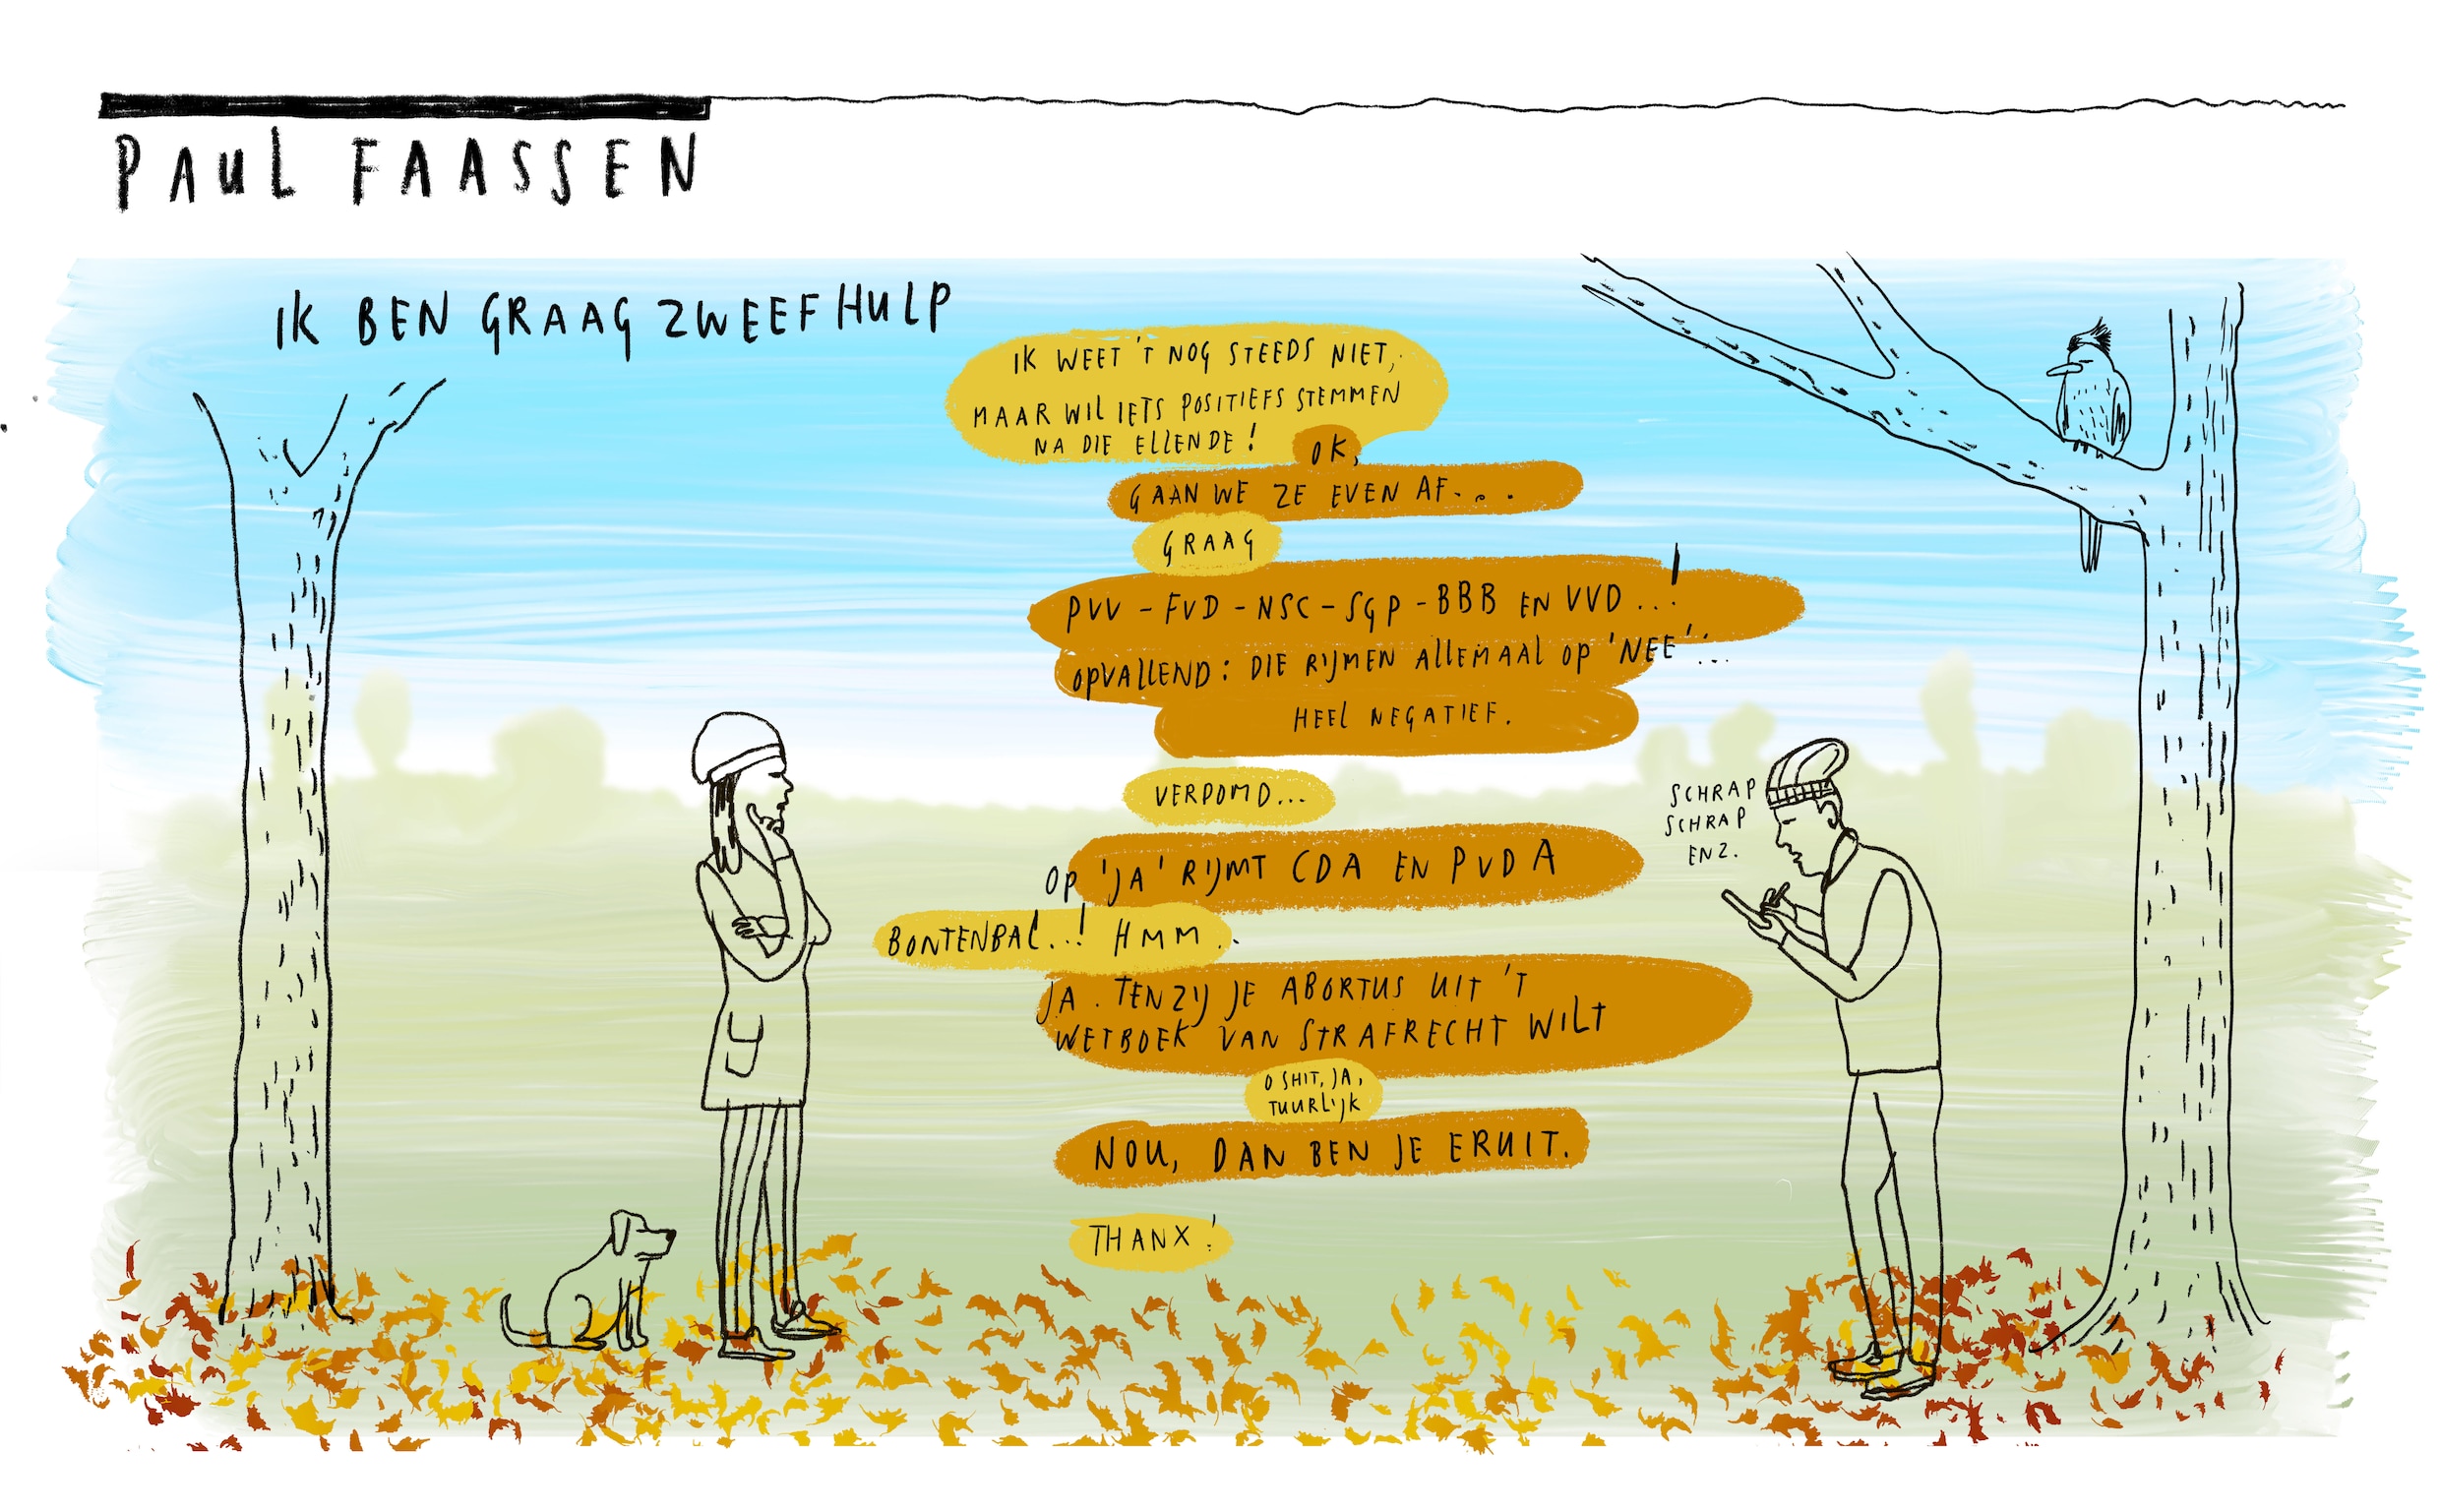 PAUL FAASSEN
IK BEN GRAAG ZWEEFHULP
IK WEET 'T NOG STEEDS NIET,
MAAR WIL IETS POSITIEFS STEMMEN
NA DIE ELLENDE!
OK,
GAAN WE ZE EVEN AF...
GRAAG
PVV - FVD - NSC - SGP - BBB EN VVD ...!
OPVALLEND: DIE RIJMEN ALLEMAAL OP 'NEE'...
HEEL NEGATIEF.
VERDOMD...
OP 'JA' RIJMT CDA EN PVDA
BONTENBAL..! HMM..
JA. TENZIJ JE ABORTUS UIT 'T
WETBOEK VAN STRAFRECHT WILT
O SHIT, JA,
TUURLIJK
NOU, DAN BEN JE ERUIT.
THANX!
SCHRAP
SCHRAP
ENZ.